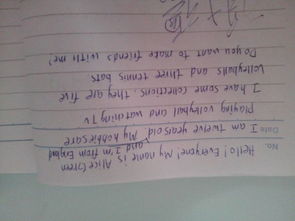 No.
Date
Hello! Everyone! My name is Alice Green
and I'm from England
I am twelve years old. My hobbies are
Playing volleyball and watching TV
I have some collections. They are five
volleyballs and three tennis bats
Do you want to make friends with me?